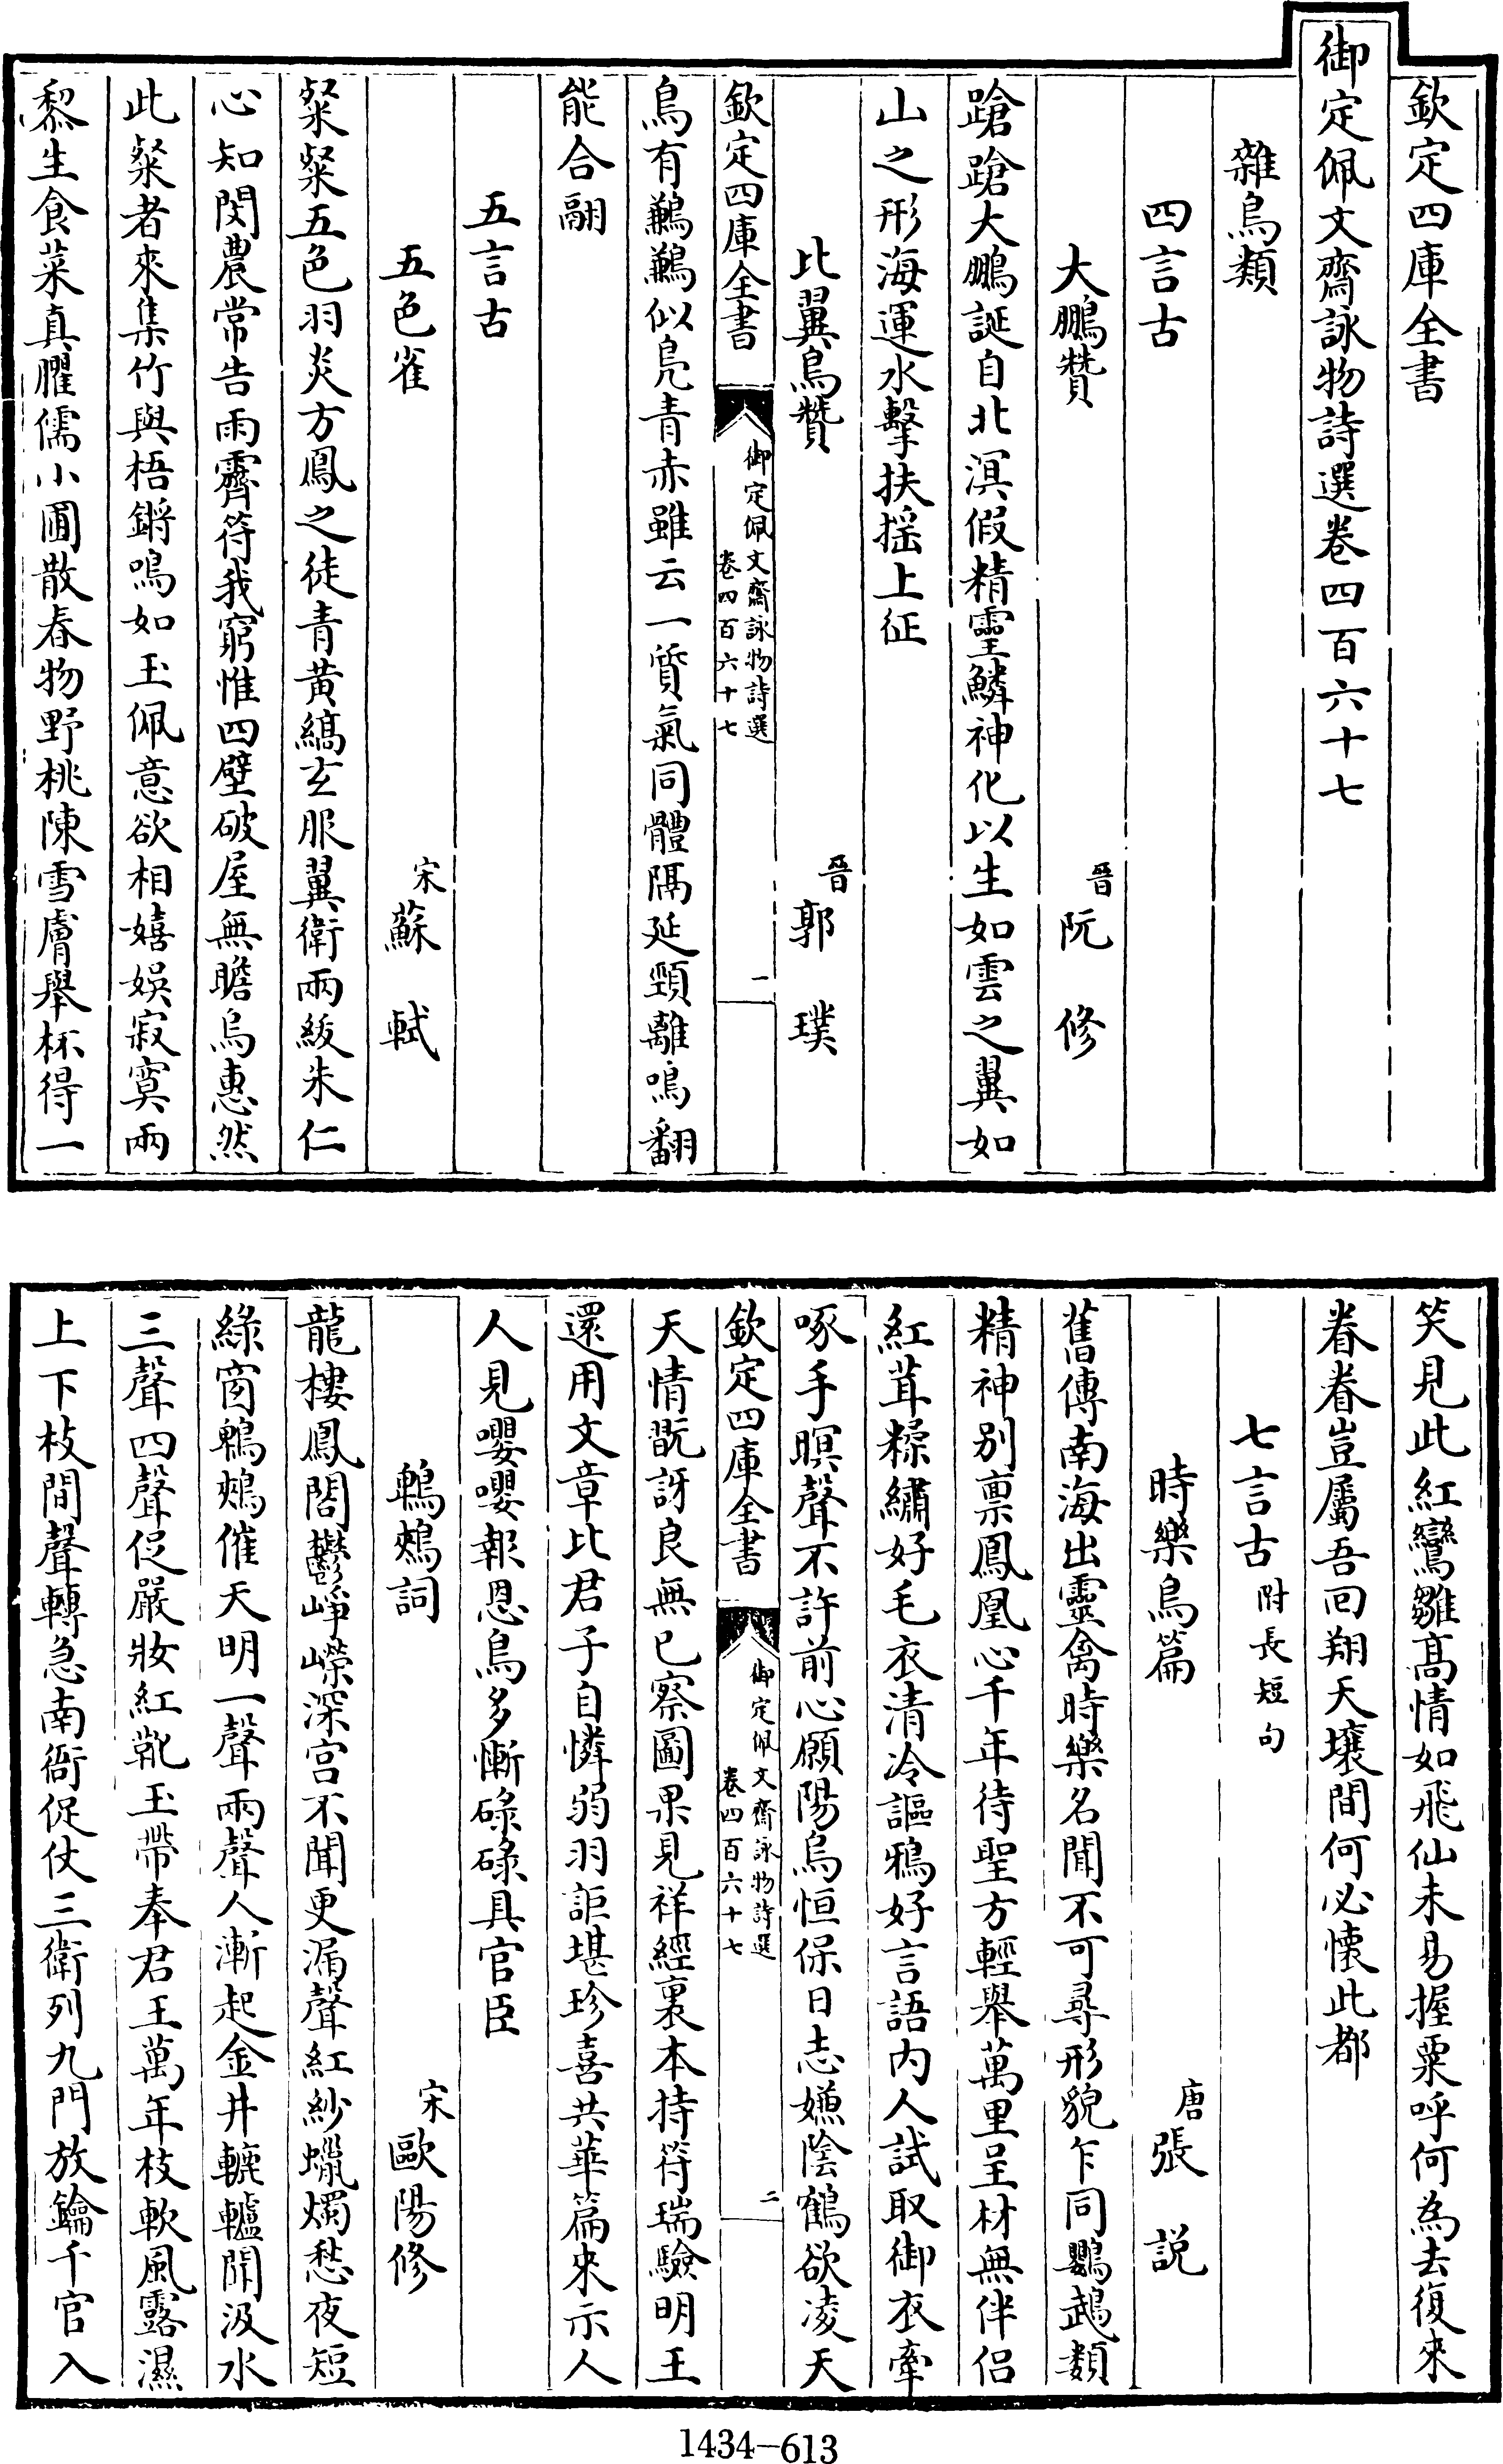 欽定四庫全書
御定佩文齋詠物詩選卷四百六十七
雜鳥類
四言古
大鵬贊　晉阮修
蹌蹌大鵬誕自北溟假精靈鱗神化以生如雲之翼如
山之形海運水擊扶搖上征
比翼鳥贊　晉郭璞
欽定四庫全書　御定佩文齋詠物詩選　卷四百六十七　一
鳥有鶼鶼似鳧青赤雖云一質氣同體隔延頸離鳴翻
能合翮
五言古
五色雀　宋蘇軾
粲粲五色羽炎方鳳之徒青黃縞玄服翼衛兩紱朱仁
心知閔農常告雨霽符我窮惟四壁破屋無瞻烏惠然
此粲者來集竹與梧鏘鳴如玉佩意欲相嬉娛寂寞兩
黎生食菜真臞儒小圃散春物野桃陳雪膚舉杯得一
笑見此紅鸞雛高情如飛仙未易握粟呼何為去復來
眷眷豈屬吾回翔天壤間何必懷此都
七言古附長短句
時樂鳥篇　唐張說
舊傳南海出靈禽時樂名聞不可尋形貌乍同鸚鵡類
精神別稟鳳凰心千年待聖方輕舉萬里呈材無伴侶
紅茸糅繡好毛衣清泠謳鴉好言語內人試取御衣牽
啄手暝聲不許前心願陽烏恒保日志嫌陰鶴欲凌天
欽定四庫全書　御定佩文齋詠物詩選　卷四百六十七　二
天情翫訝良無已察圖果見祥經裏本持符瑞驗明王
還用文章比君子自憐弱羽詎堪珍喜共華篇來示人
人見嚶嚶報恩鳥多慚碌碌具官臣
鵯鵊詞　宋歐陽修
龍樓鳳閣鬱崢嶸深宮不聞更漏聲紅紗蠟燭愁夜短
綠窗鵯鵊催天明一聲兩聲人漸起金井轆轤聞汲水
三聲四聲促嚴妝紅靴玉帶奉君王萬年枝軟風露濕
上下枝間聲轉急南衙促仗三衛列九門放鑰千官入
1434-613